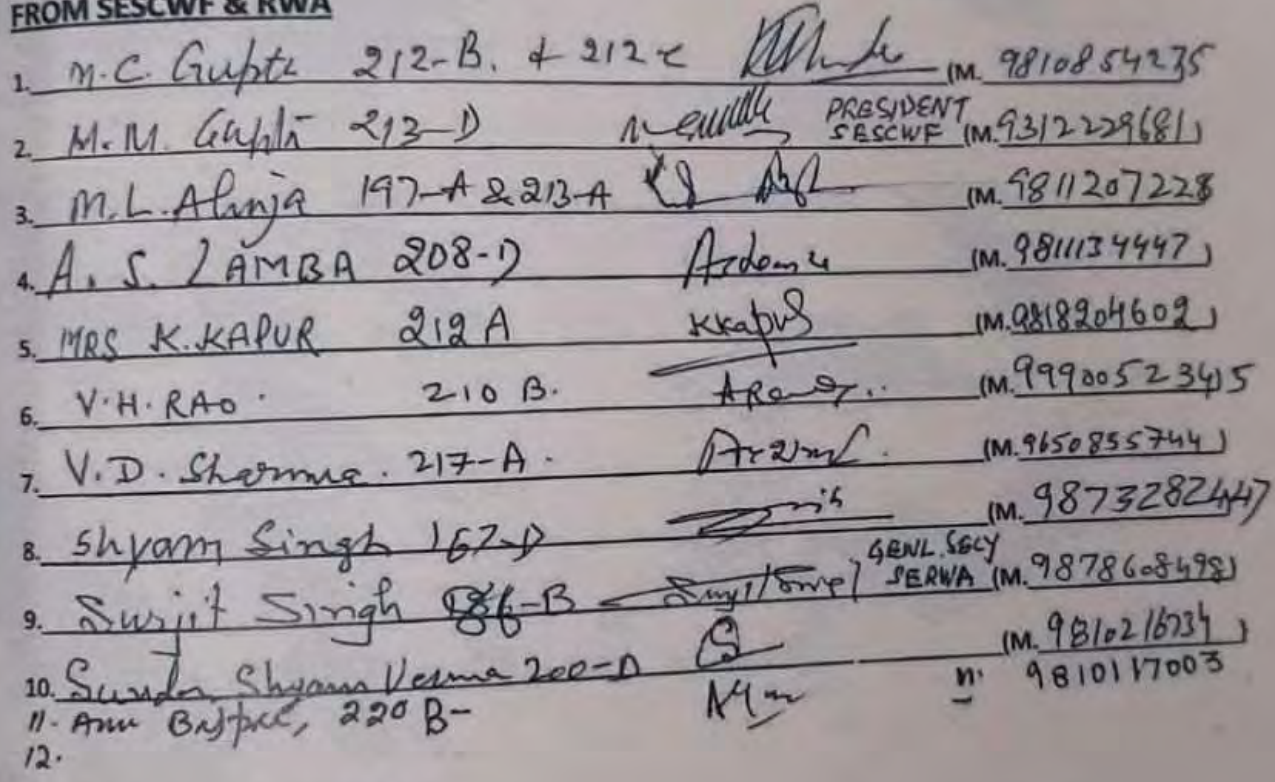 FROM SESCWF & RWA
1. M.C. Gupta 212-B. & 212 C (M. 9810854235
2. M.M. Gupta 213-D PRESIDENT SESCWF (M. 9312229681)
3. M.L. Ahuja 197-A & 213-A (M. 9811207228
4. A. S. LAMBA 208-D (M. 9811134447)
5. MRS K. KAPUR 212 A KKapur (M. 9818204602)
6. V.H. RAO. 210 B. (M.
7. V.D. Sharma. 217-A. (M. 9650855744)
8. Shyam Singh 167-D (M.
9. Surjit Singh GENL. SECY SERWA (M. 9878608498)
10. Sunder Shyam Verma 200-D (M. 9810216734)
11. 220 B- M. 9810117003
12.